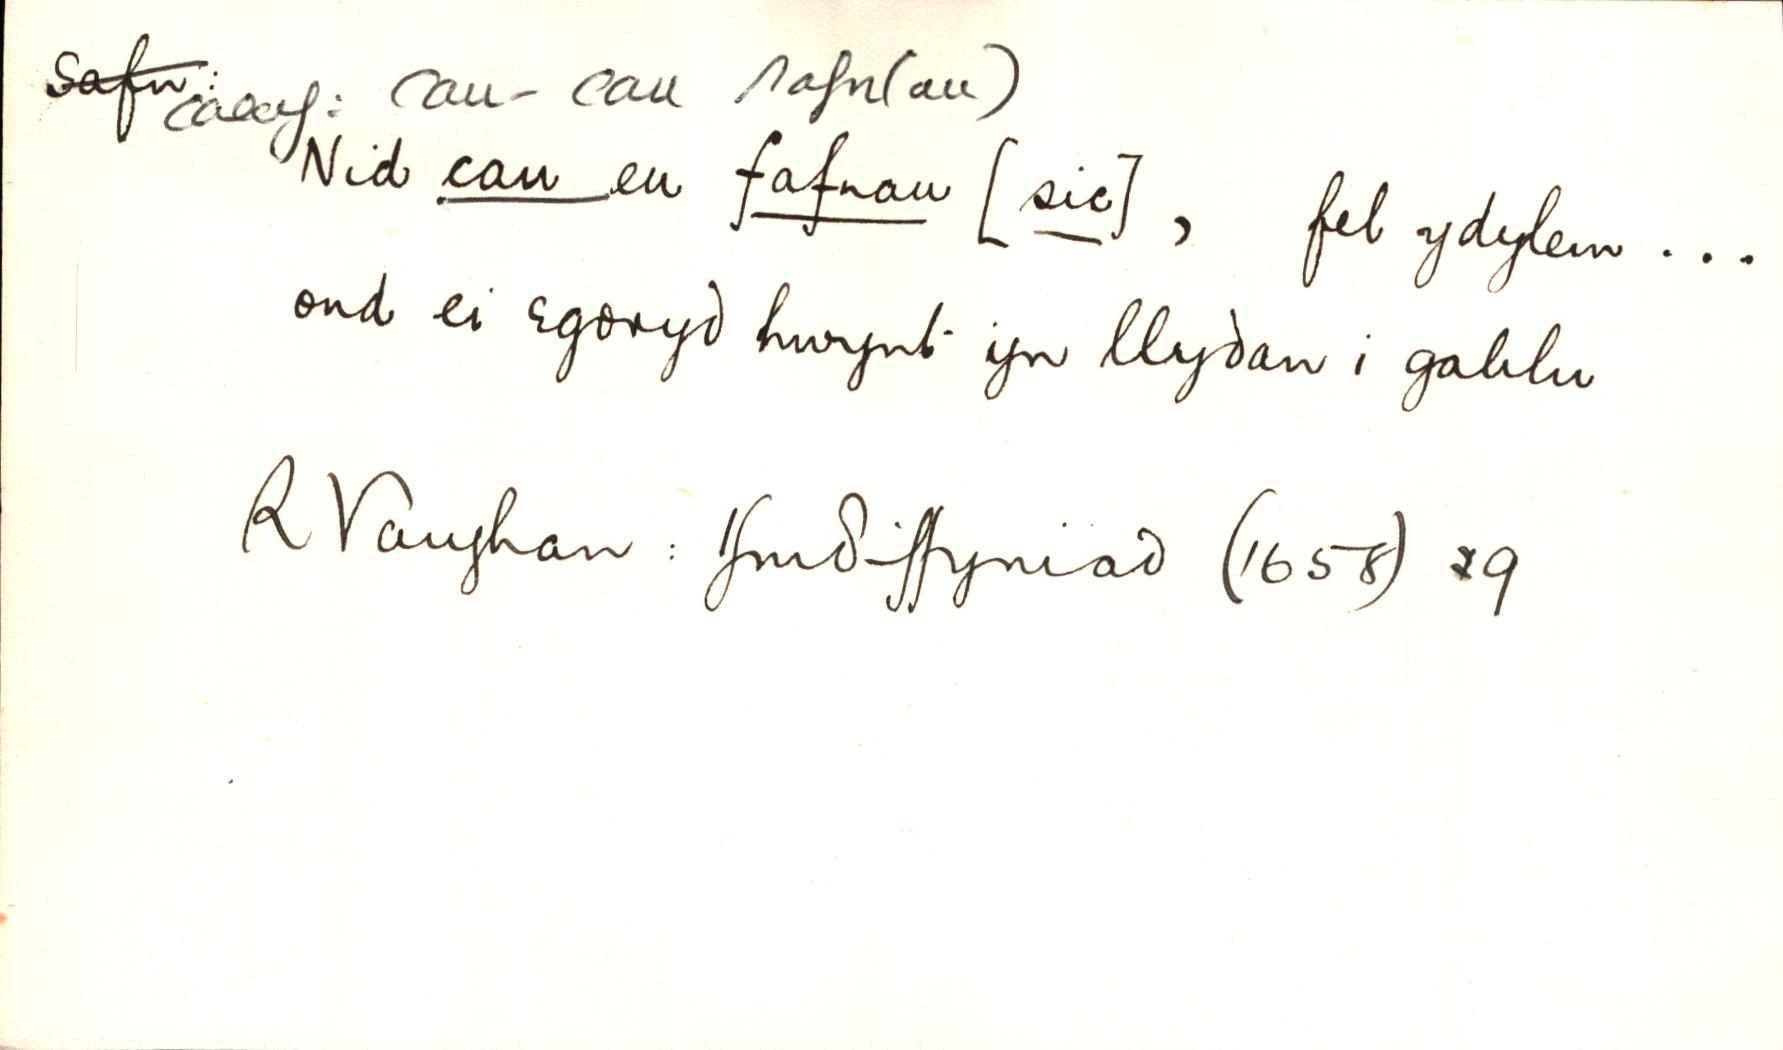 ~~safn:~~ caeaf: cau - cau safn(au)
Nid cau eu fafnau [sic], fel ydylem ...
ond ei Egoryð hwynt yn llyðan i gablu
R Vaughan : Ymðiffyniað (1658) 29